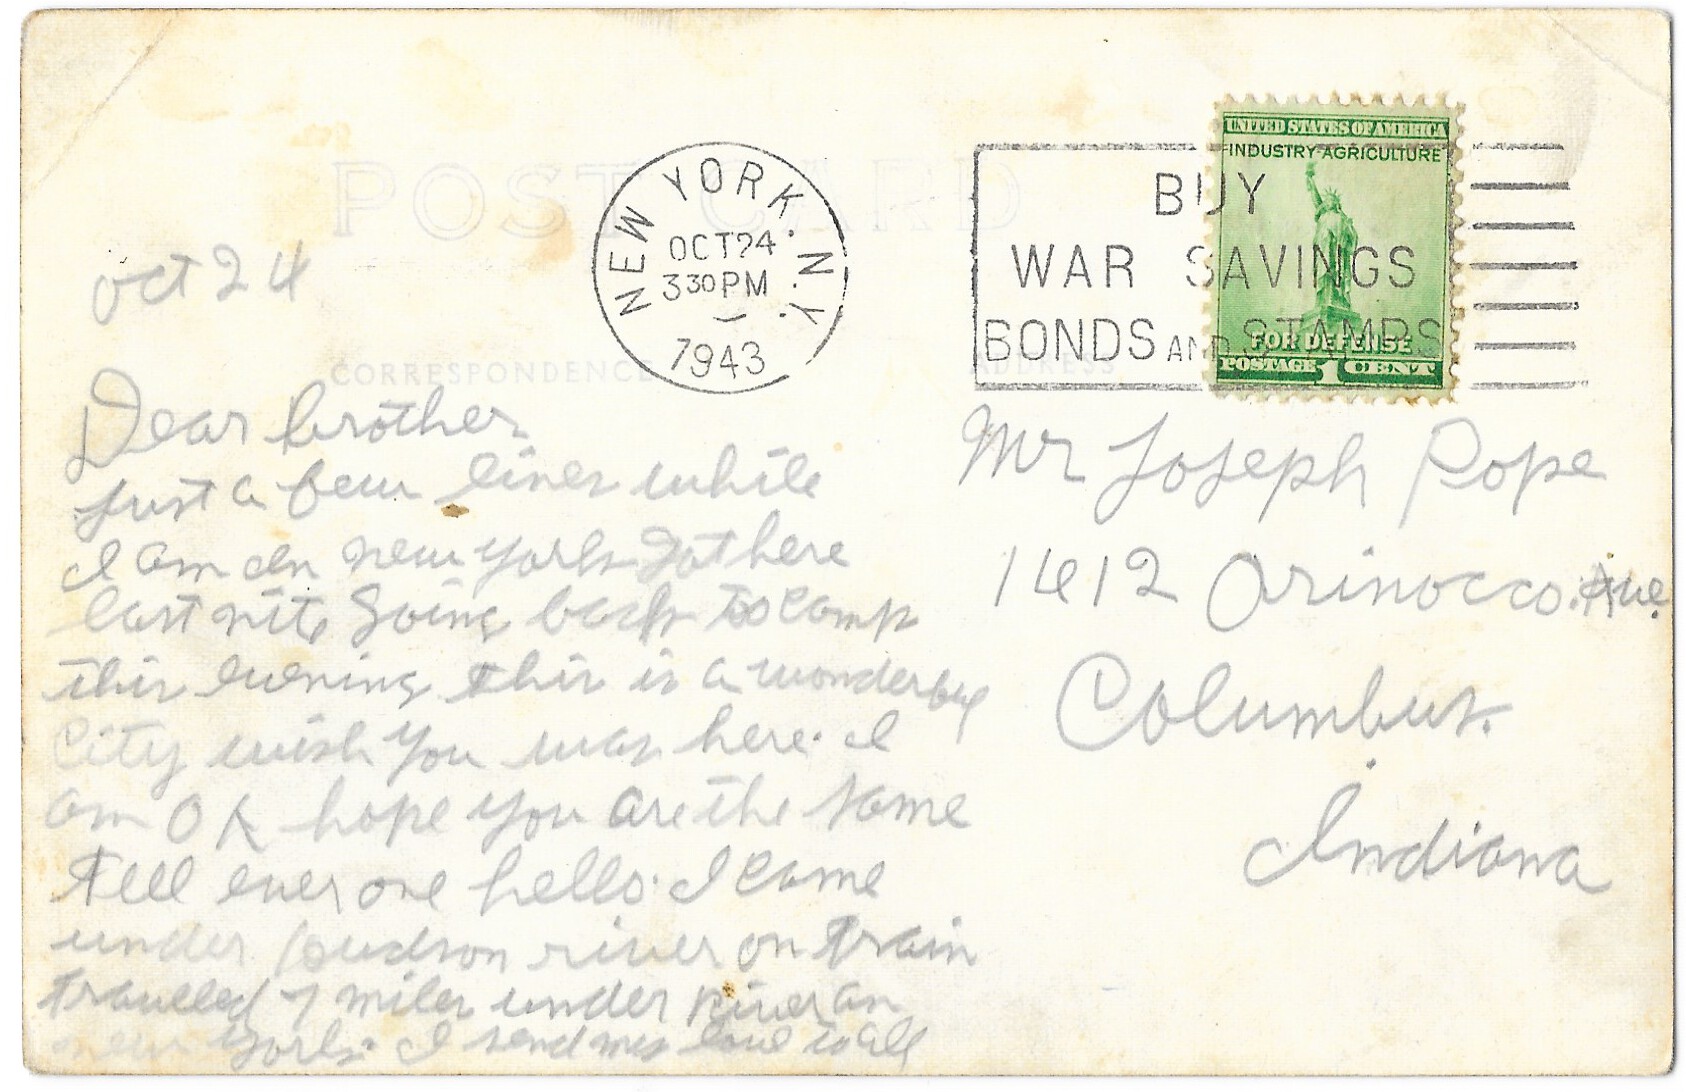 POST CARD
NEW YORK, N.Y.
OCT 24
3 30 PM
1943
BUY
WAR SAVINGS
BONDS AND STAMPS
UNITED STATES OF AMERICA
INDUSTRY-AGRICULTURE
FOR DEFENSE
POSTAGE 1 CENT
CORRESPONDENCE
ADDRESS
Oct 24
Dear brother
Just a few lines while
I am in new york Got here
last nite Going back to camp
this evening this is a wonderful
City wish you was here. I
am O K hope you are the same
tell ever one hello. I came
under hudson river on train
travelled 7 miles under River in
new York. I send my love to all
Mr Joseph Pope
1412 Orinocco. Ave.
Columbus.
Indiana